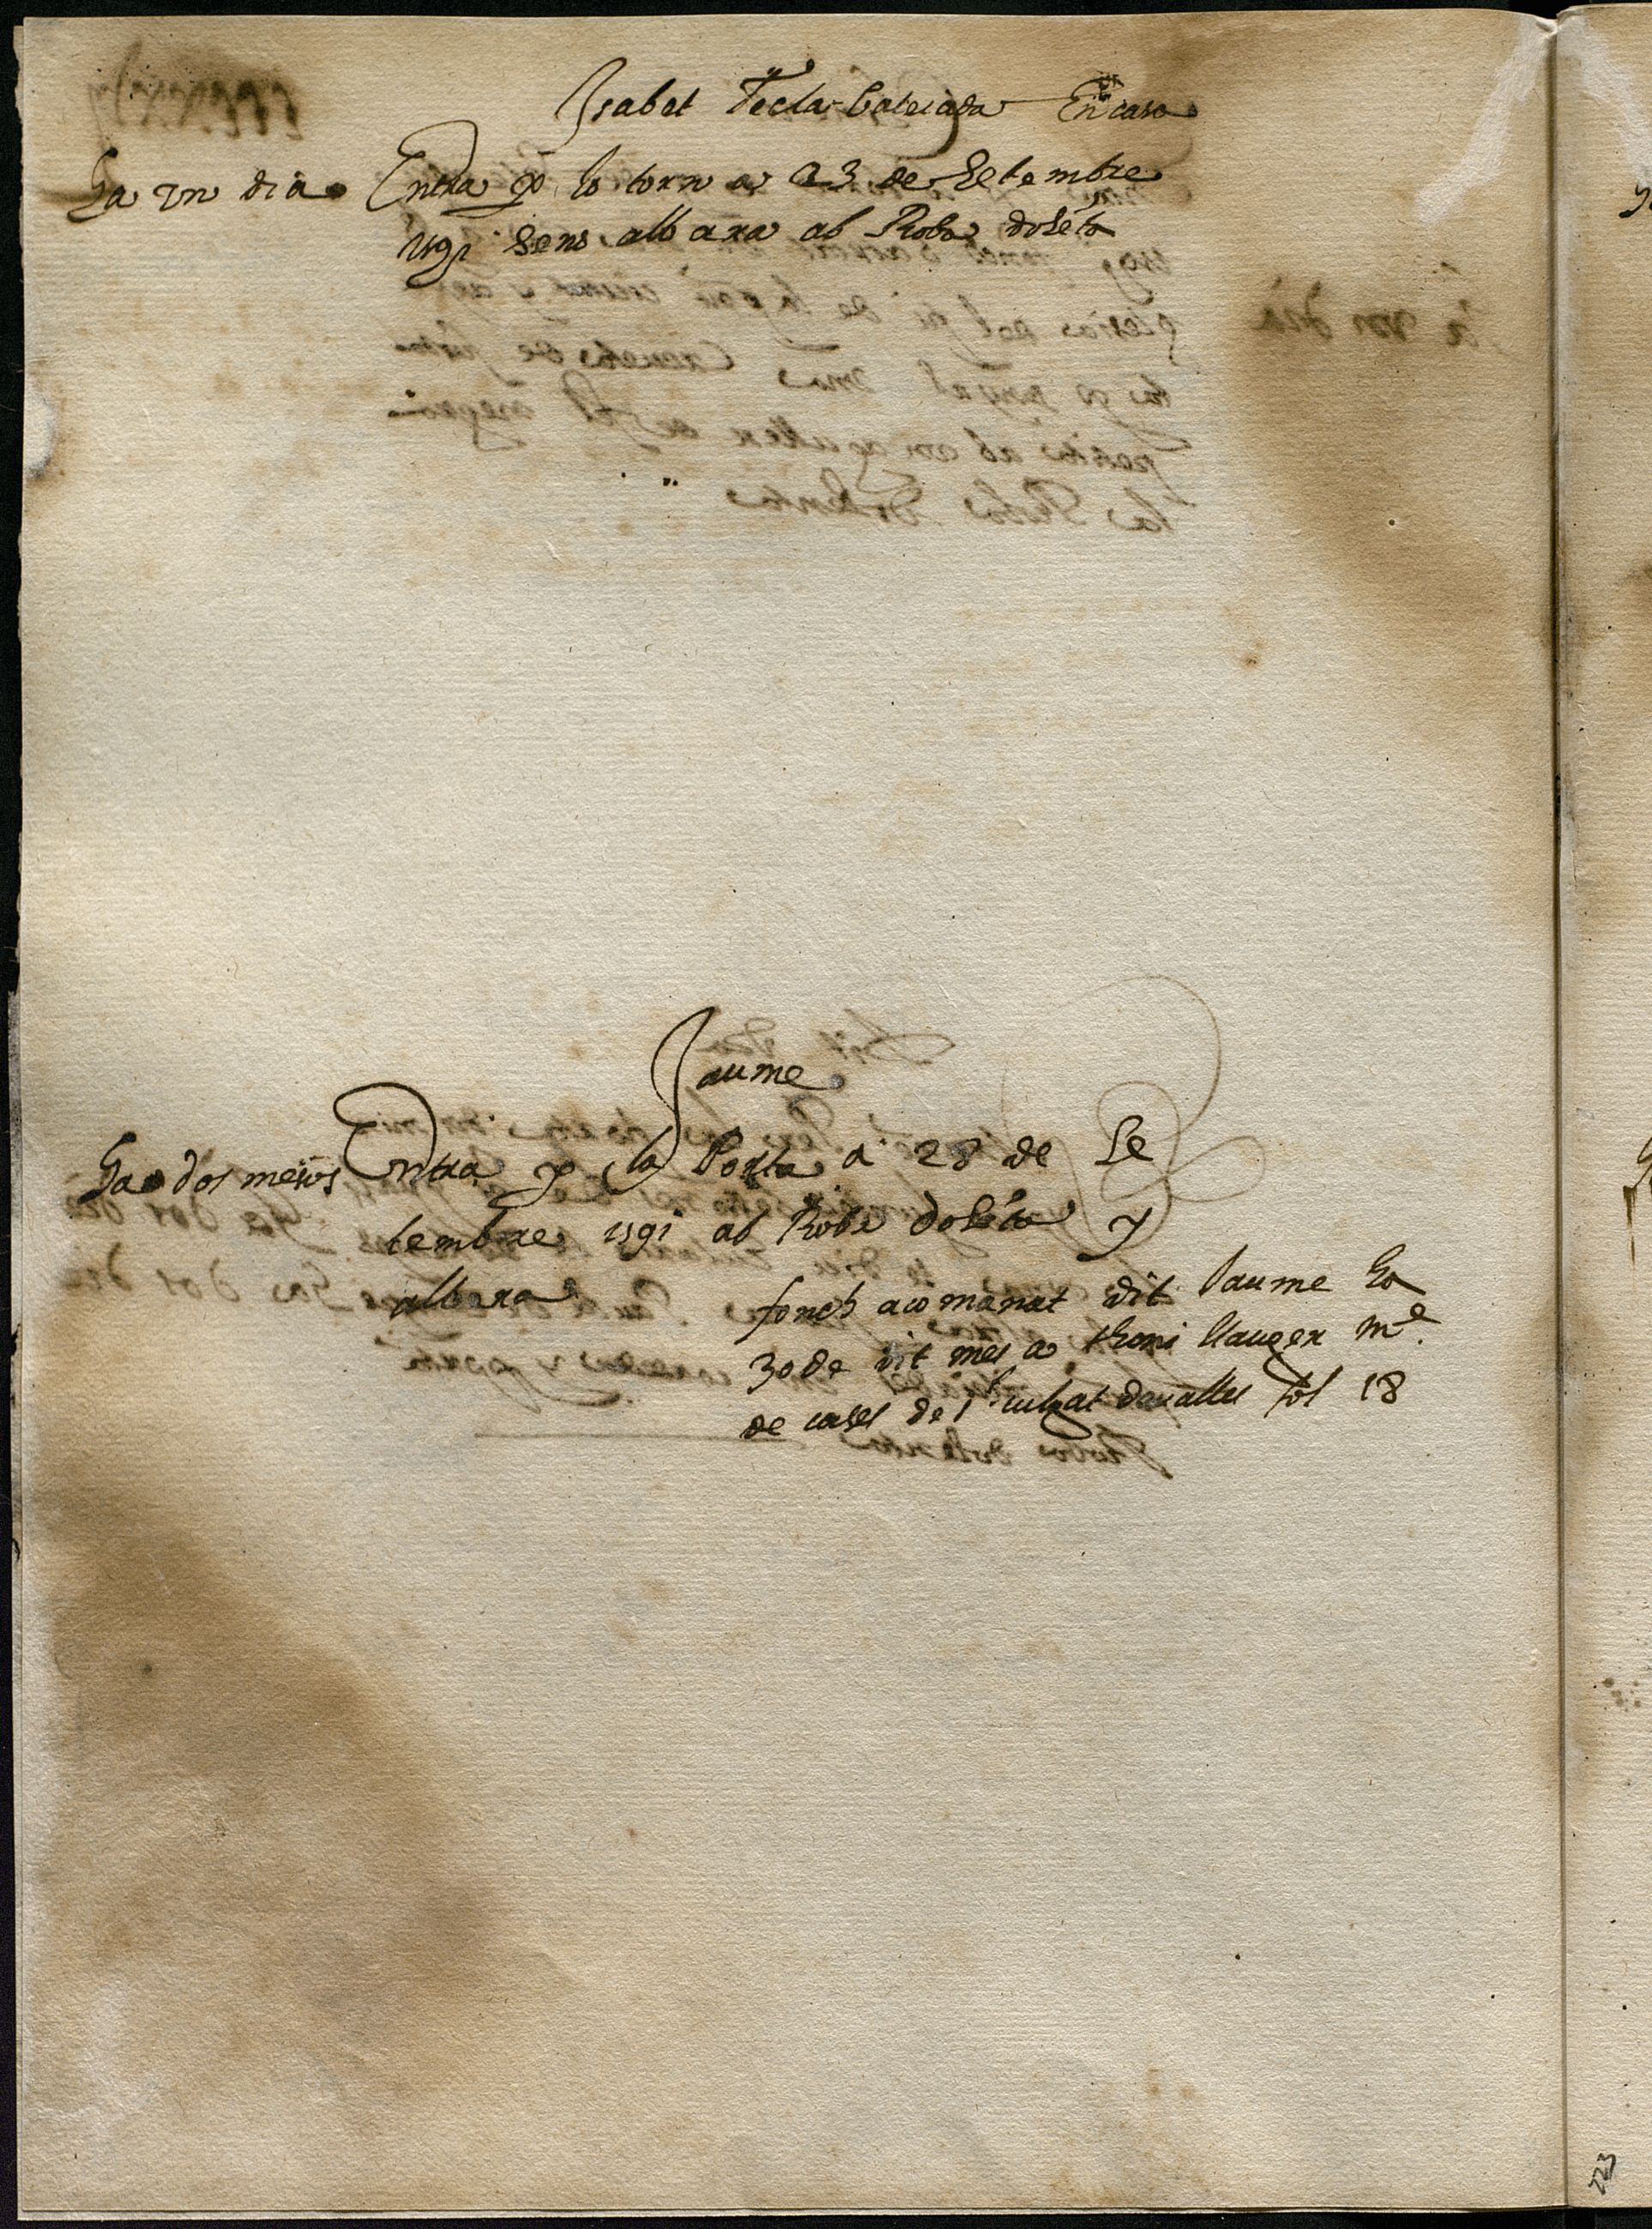 Isabet Tecla batejada En casa
Ha un dia Entra p lo torn a 23 de Setembre
1591 sens albara ab Roba dolẽta
Jaume
Ha dos mesos Entra p la Porta a 28 de Se
tembre 1591 ab Roba dolẽta y
albara
fonch acomanat dit Jaume Ha
30 de dit mes a thoni llauger mᵉ
de cases de deualles fol 18